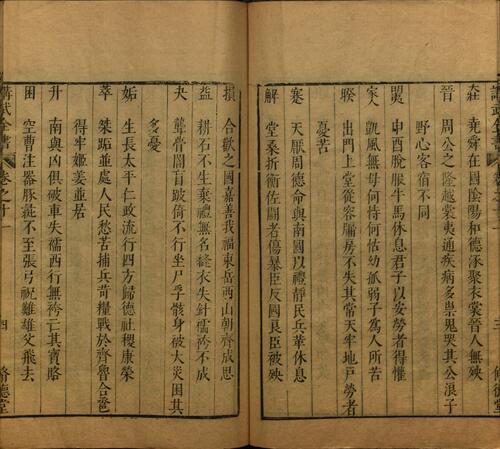 堯舜在國陰陽和德涿聚衣裳晉人無殃
晉 周公之隆越裳夷通疾病多祟鬼哭其公浪子
野心客宿不同
申酉脫服牛馬休息君子以安勞者得懽
家人 凱風無母何恃何怙幼孤弱子為人所苦
睽 出門上堂從容牖房不失其常天牢地戶勞者
憂苦
蹇 天厭周德命與南國以禮靜民兵革休息
解 堂桑折衝佐鬭者傷暴臣反國良臣被殃
損 合歡之國嘉善我福東岳西山朝齊成思
益 耕石不生棄禮無名縫衣失針襦袴不成
夬 聾瞽闇盲跛倚不行坐尸爭骸身被火災困其
多憂
姤 生長太平仁政流行四方歸德社稷康榮
萃 桀跖並處人民愁苦捕兵荷糧戰於齊魯合巹
得牢姬姜並居
升 南與凶俱破車失襦西行無袴亡其寶賂
困 空曹注器豚彘不至張弓祝雞雄父飛去
講武全書 卷之十一 四 脩德堂